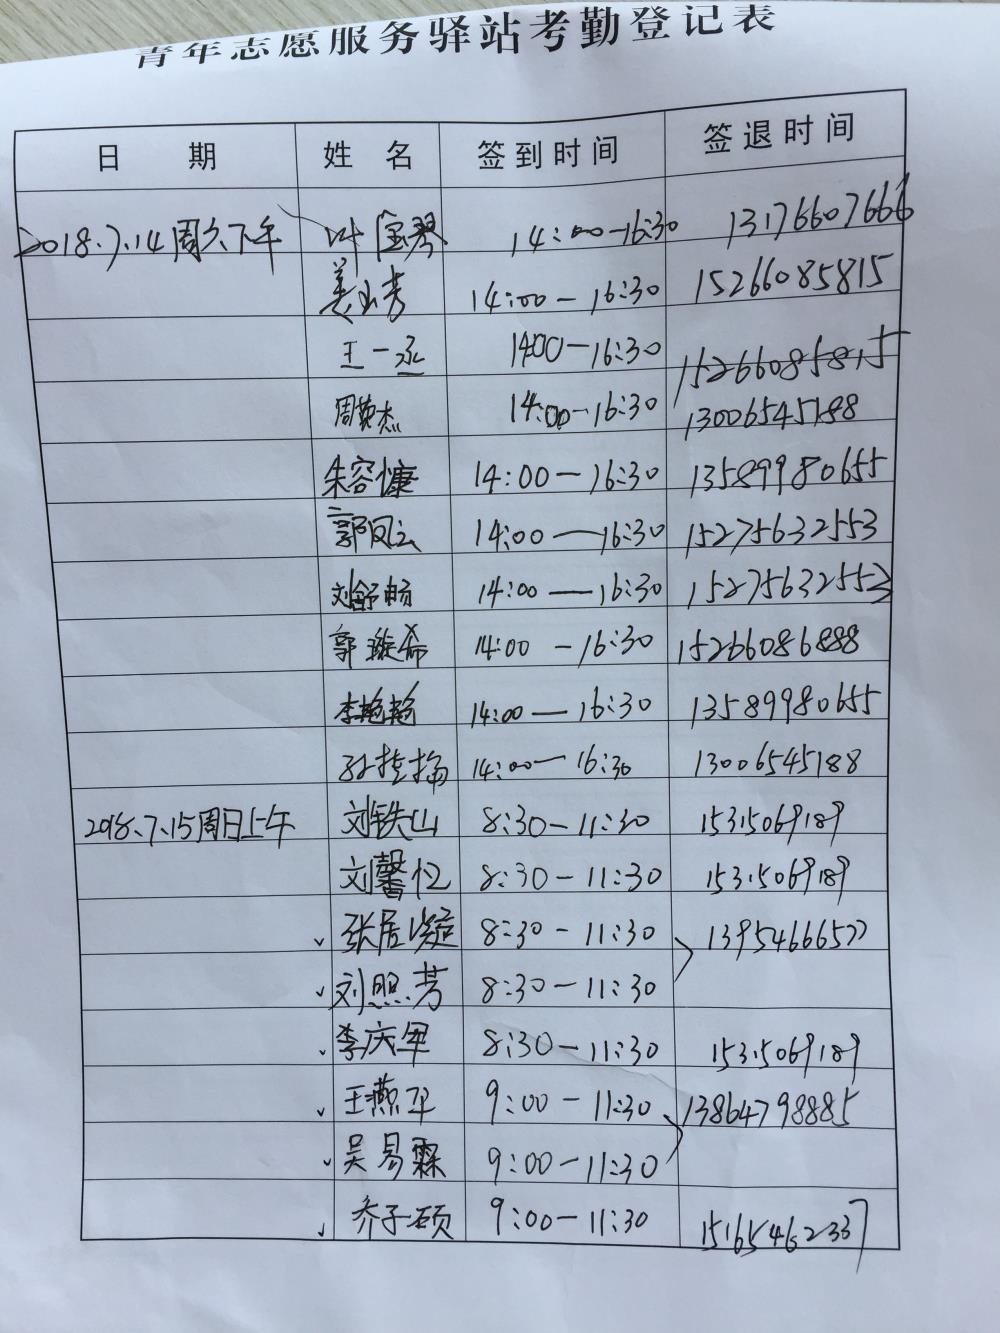 青年志愿服务驿站考勤登记表
日 期 姓 名 签到时间 签退时间
2018.7.14周六下午 叶宝琴 14:00-16:30 13176607666
姜小芳 14:00-16:30 15266085815
王一丞 1400-16:30 15266085815
周英杰 14:00-16:30 13006545188
朱容慷 14:00-16:30 13589980655
郭凤云 14:00-16:30 15275632553
刘舒畅 14:00-16:30 15275632553
郭璇希 14:00-16:30 15266086888
李艳艳 14:00-16:30 13589980655
孙 14:00-16:30 13006545188
2018.7.15周日上午 刘铁山 8:30-11:30 15315069189
刘馨忆 8:30-11:30 15315069189
张居 8:30-11:30 13954666577
刘照芳 8:30-11:30
李庆军 8:30-11:30 15315069189
王燕平 9:00-11:30 13864798885
吴易霖 9:00-11:30
乔子硕 9:00-11:30 15165462337